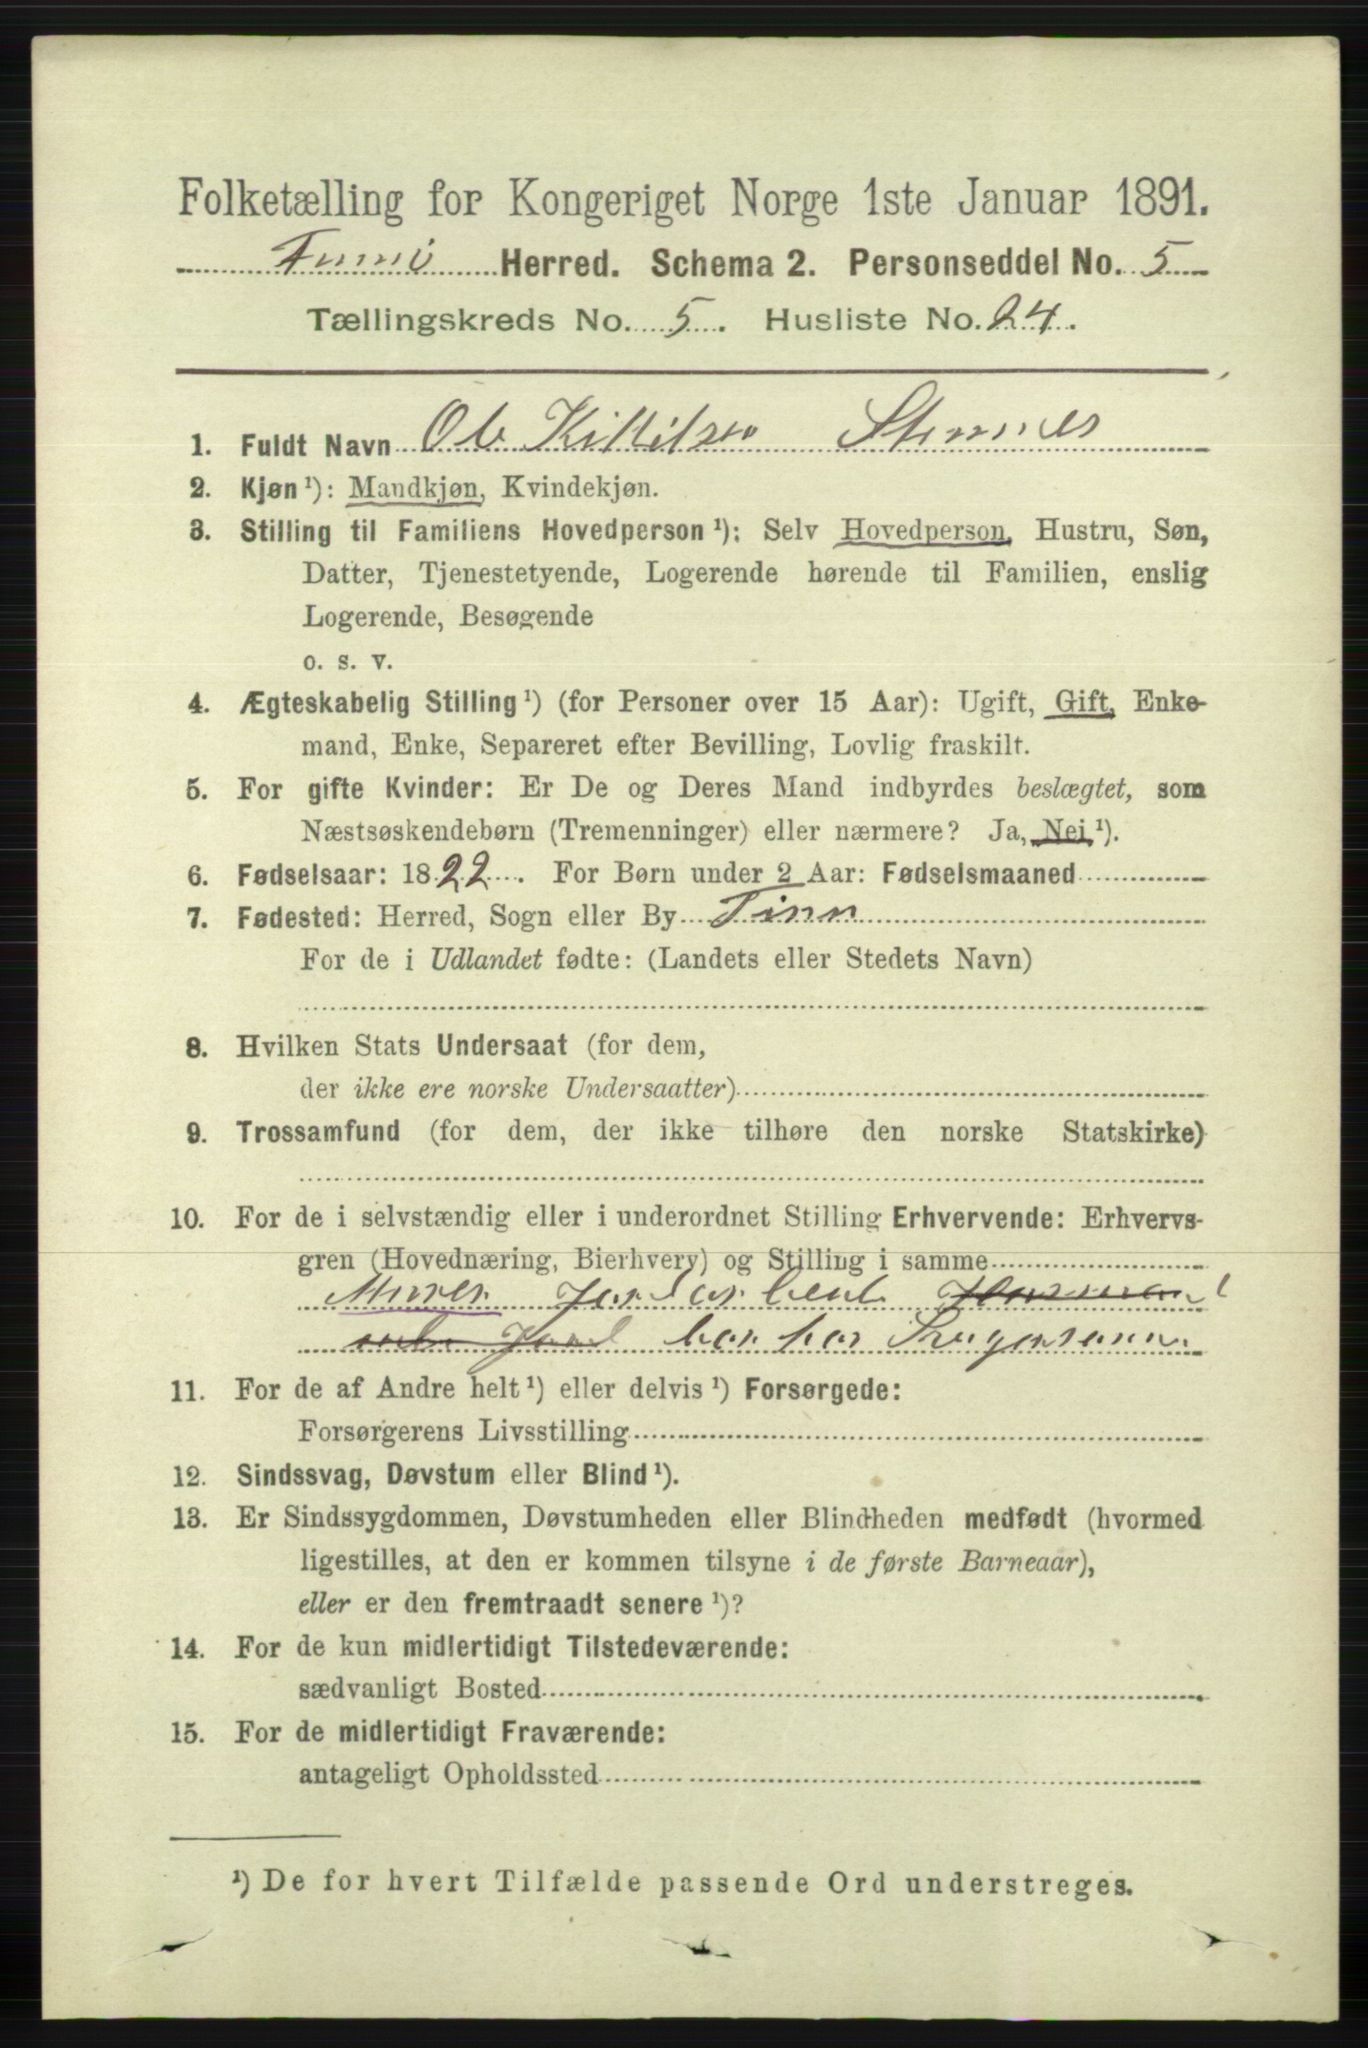 Folketælling for Kongeriget Norge 1ste Januar 1891.
Herred. Schema 2. Personseddel No. 5
Tællingskreds No. 5. Husliste No. 24.
1. Fuldt Navn Ole Kittilsen
2. Kjøn ¹): Mandkjøn, Kvindekjøn.
3. Stilling til Familiens Hovedperson ¹): Selv Hovedperson, Hustru, Søn,
Datter, Tjenestetyende, Logerende hørende til Familien, enslig
Logerende, Besøgende
o. s. v.
4. Ægteskabelig Stilling ¹) (for Personer over 15 Aar): Ugift, Gift, Enke-
mand, Enke, Separeret efter Bevilling, Lovlig fraskilt.
5. For gifte Kvinder: Er De og Deres Mand indbyrdes beslægtet, som
Næstsøskendebørn (Tremenninger) eller nærmere? Ja, Nei ¹).
6. Fødselsaar: 1822. For Børn under 2 Aar: Fødselsmaaned
7. Fødested: Herred, Sogn eller By Tinn
For de i Udlandet fødte: (Landets eller Stedets Navn)
8. Hvilken Stats Undersaat (for dem,
der ikke ere norske Undersaatter)
9. Trossamfund (for dem, der ikke tilhøre den norske Statskirke)
10. For de i selvstændig eller i underordnet Stilling Erhvervende: Erhvervs-
gren (Hovednæring, Bierhverv) og Stilling i samme
11. For de af Andre helt ¹) eller delvis ¹) Forsørgede:
Forsørgerens Livsstilling
12. Sindssvag, Døvstum eller Blind ¹).
13. Er Sindssygdommen, Døvstumheden eller Blindheden medfødt (hvormed
ligestilles, at den er kommen tilsyne i de første Barneaar),
eller er den fremtraadt senere ¹)?
14. For de kun midlertidigt Tilstedeværende:
sædvanligt Bosted
15. For de midlertidigt Fraværende:
antageligt Opholdssted
¹) De for hvert Tilfælde passende Ord understreges.